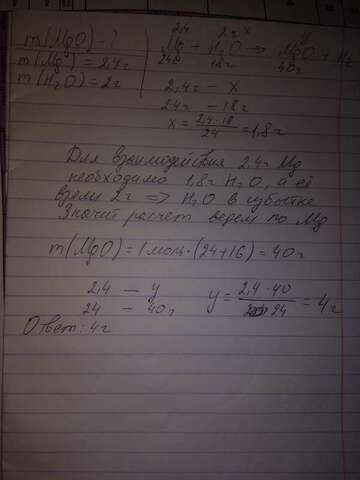 2,4 2г x y
m(MgO) - ? Mg + H₂O → MgO + H₂
m(Mg) = 2,4г 24г 18г 40г
m(H₂O) = 2г 2,4г - x
24г - 18г
x = 2,4·18/24 = 1,8г
Для взаимодействия 2,4г Mg
необходимо 1,8г H₂O, а её
взяли 2г => H₂O в избытке
Значит расчет ведем по Mg
m(MgO) = 1моль·(24+16) = 40г
2,4 - y y = 2,4·40/24 = 4г
24 - 40г
Ответ: 4г